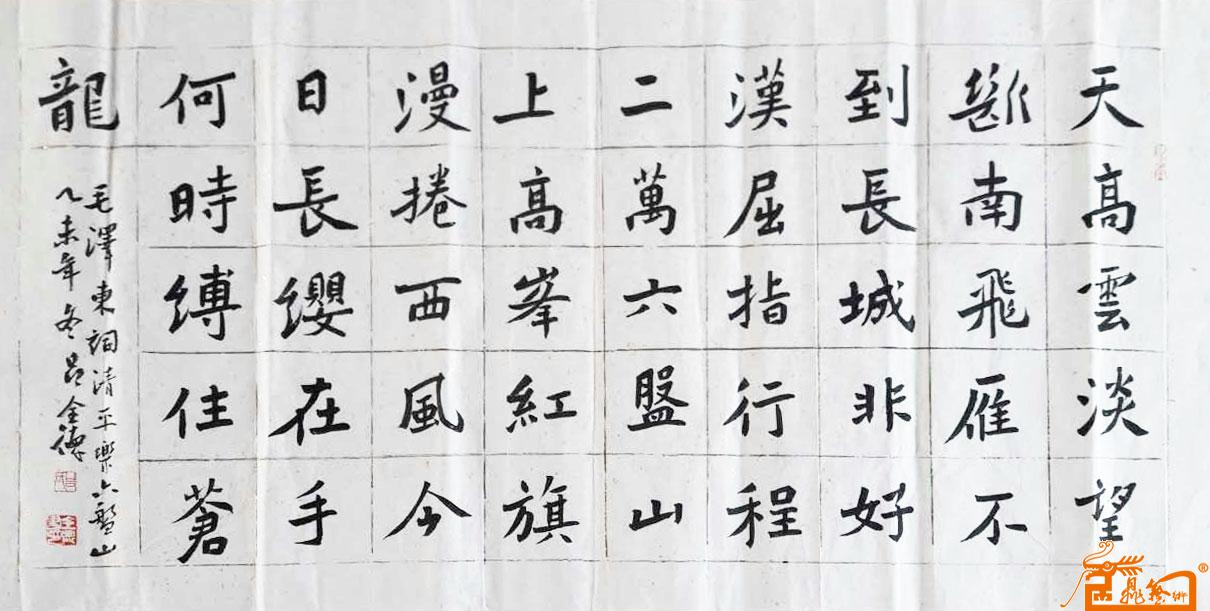 天高雲淡望
斷南飛雁不
到長城非好
漢屈指行程
二萬六盤山
上高峯紅旗
漫捲西風今
日長纓在手
何時縛住蒼
龍
毛澤東詞清平樂六盤山
乙未年冬呂全德